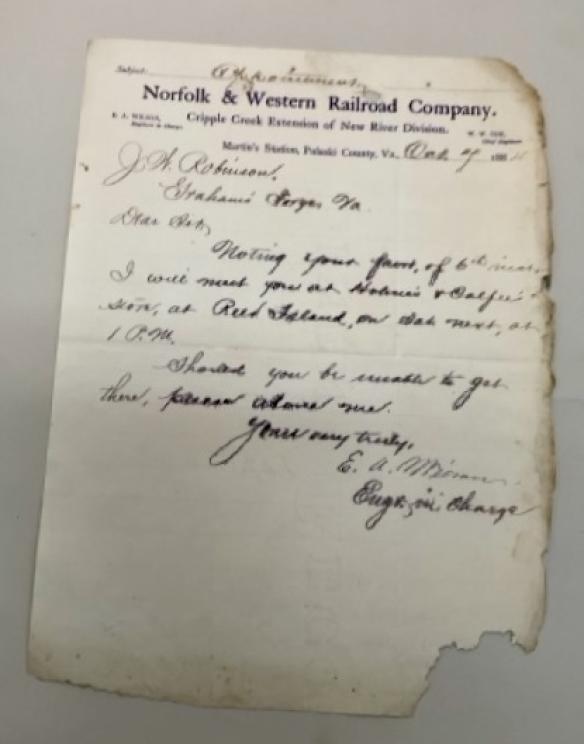 Subject: Appointment
Norfolk & Western Railroad Company.
Cripple Creek Extension of New River Division.
Engineer in Charge.
Chief Engineer
Martin's Station, Pulaski County, Va., 7 188
J. W. Robinson,
Graham's Forge, Va.
Dear Sir,
Noting your favor, of 6th inst.
I will meet you at &
store, at Reed Island, on Sat next, at
1 P.M.
Should you be unable to get
there, please advise me.
Yours very truly,
E. A. Wilson
Engr. in Charge